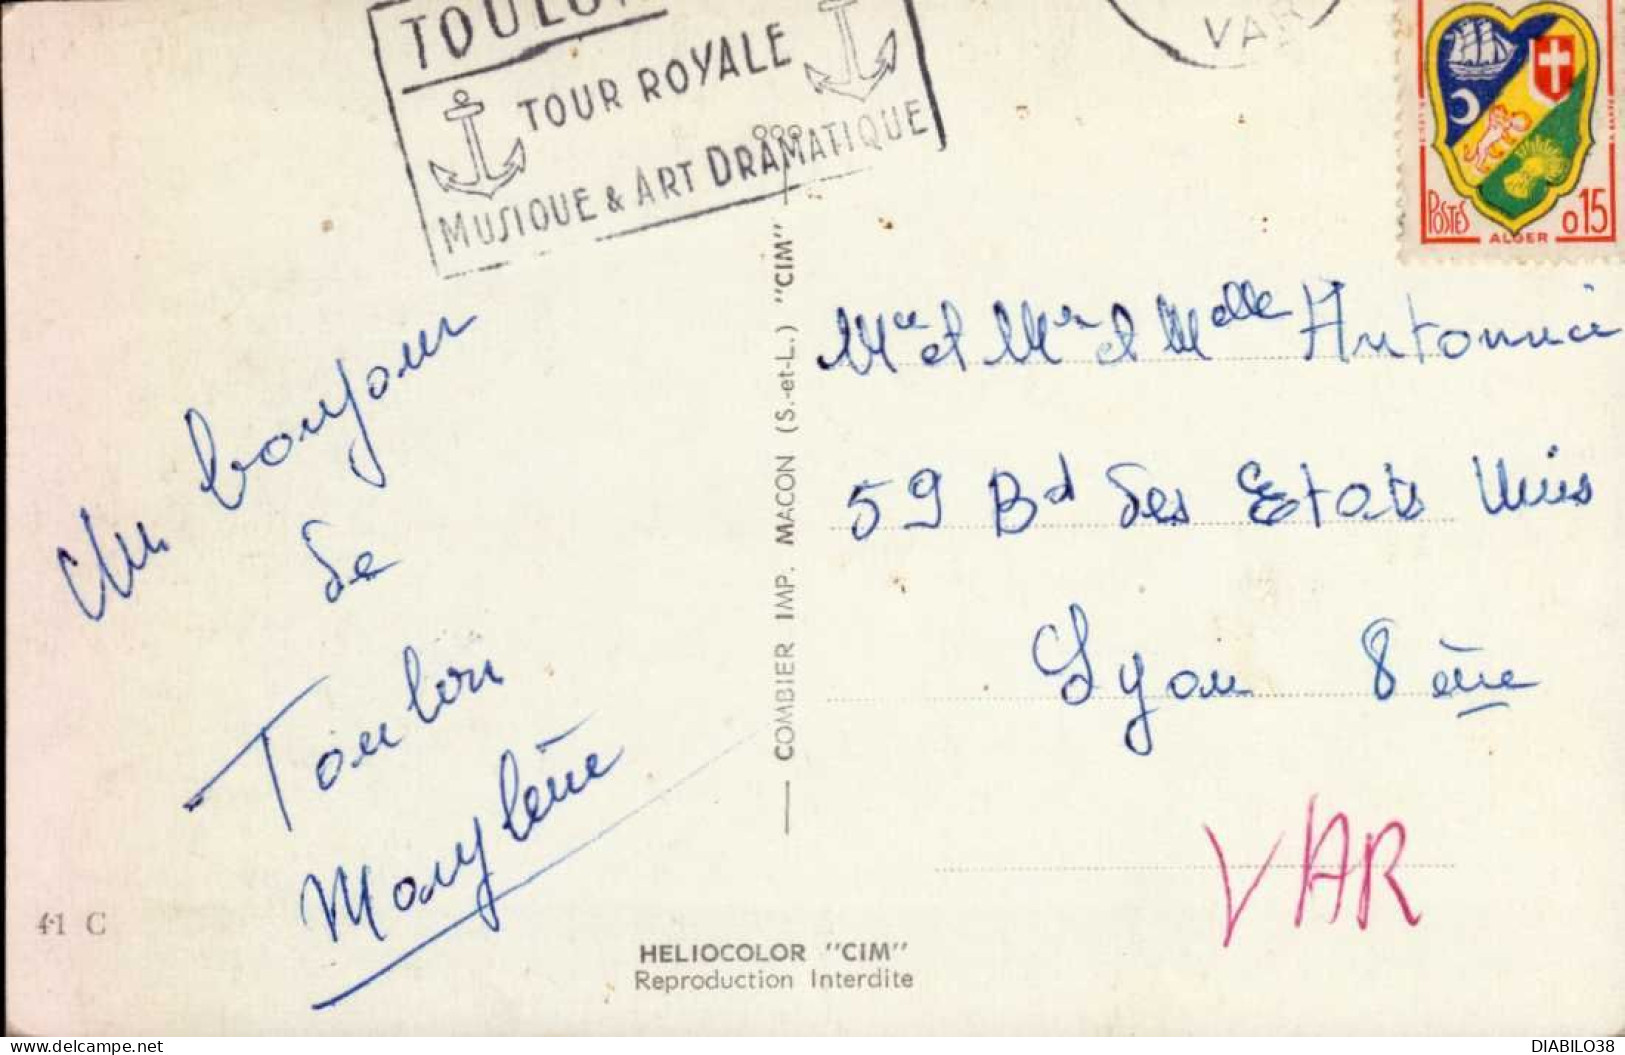 TOULON
TOUR ROYALE
MUSIQUE & ART DRAMATIQUE
VAR
POSTES
ALGER
0,15
Un bonjour
de
Toulon
Marylène
COMBIER IMP. MACON (S.-et-L.) "CIM"
Mme et Mr et Melle
59 Bd des Etats Unis
Lyon 8ème
VAR
41 C
HELIOCOLOR "CIM"
Reproduction Interdite
www.delcampe.net
DIABILO38